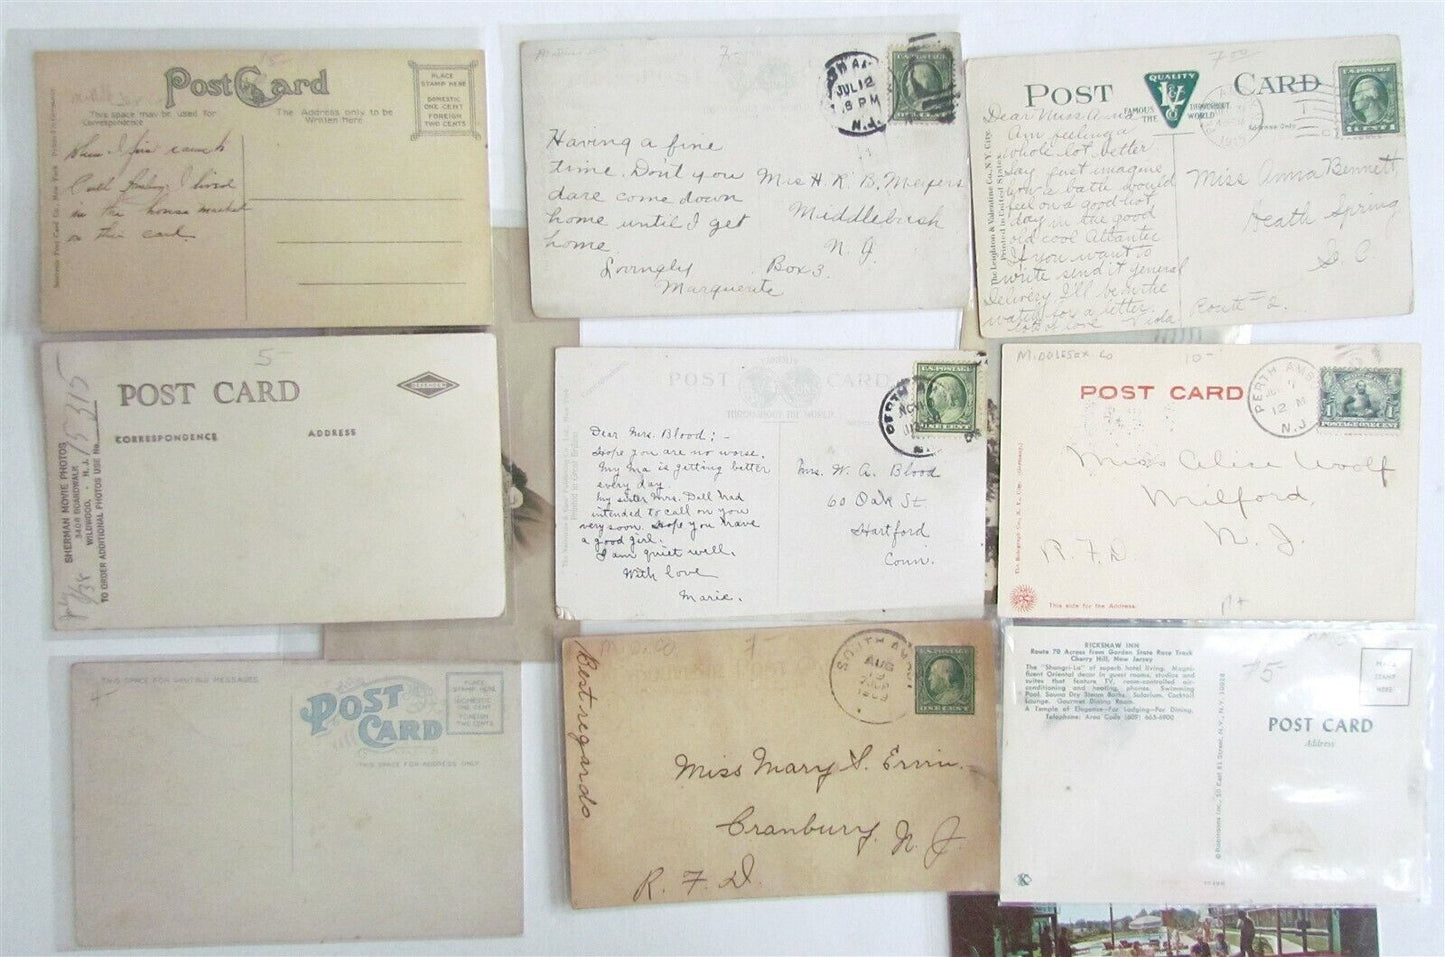 POST CARD
PLACE
STAMP HERE
DOMESTIC
ONE CENT
FOREIGN
TWO CENTS
This space may be used for
Correspondence
The Address only to be
Written Here
When I first came to
I lived
in the house marked
on this card.
7-
JUL 12
8 PM
N.J.
U.S. POSTAGE
Having a fine
time. Don't you
dare come down
home until I get
home.
Lovingly
Marguerite
Mrs H. R. B. Meyers
Middlebush
N. J.
Box 3.
7.00
POST CARD
QUALITY
FAMOUS THROUGHOUT
THE WORLD
U.S. POSTAGE
The Leighton & Valentine Co., N.Y. City.
Printed in United States.
Dear Miss Anna
Am feeling a
whole lot better
Say just imagine
how a bath would
feel on a good hot
day in the good
old cool Atlantic
If you want to
write send it general
Delivery I'll be on the
watch for a letter
lots of love Viola
Miss Anna Bennett
Heath Spring
S. C.
Route #2.
5-
POST CARD
DEFENDER
CORRESPONDENCE
ADDRESS
SHERMAN MOVIE PHOTOS
3408 BOARDWALK
WILDWOOD, - N. J.
TO ORDER ADDITIONAL PHOTOS USE No.
July
POST CARD
THROUGHOUT THE WORLD
U.S. POSTAGE
ONE CENT
NOV
Dear Mrs. Blood; -
Hope you are no worse.
My Ma is getting better
every day.
My sister Mrs. Dell had
intended to call on you
very soon. Hope you have
a good girl.
I am quiet well.
With love
Marie.
Mrs. W. A. Blood
60 Oak St.
Hartford
Conn.
MIDDLESEX CO
10-
POST CARD
PERTH AMB
7
12 M
N.J.
POSTAGE ONE CENT
Miss Alice Woolf
Milford,
N. J.
R. F. D
This side for the Address
THIS SPACE FOR WRITING MESSAGES
POST
CARD
PLACE
STAMP HERE
DOMESTIC
ONE CENT
FOREIGN
TWO CENTS
THIS SPACE FOR ADDRESS ONLY
7-
SOUTH AMBOY
AUG
U.S. POSTAGE
ONE CENT
Best regards
Miss Mary S. Ervin.
Cranbury, N. J.
R. F. D.
RICKSHAW INN
Route 70 Across from Garden State Race Track
Cherry Hill, New Jersey
The "Shangri-La" of superb hotel living. Magni-
ficent Oriental decor in guest rooms, studios and
suites that feature TV, room-controlled air-
conditioning and heating, phones. Swimming
Pool. Sauna Dry Steam Baths. Solarium. Cocktail
Lounge. Gourmet Dining Room.
A Temple of Elegance—For Lodging—For Dining.
Telephone: Area Code (609) 665-6900
PLACE
STAMP
HERE
POST CARD
Address